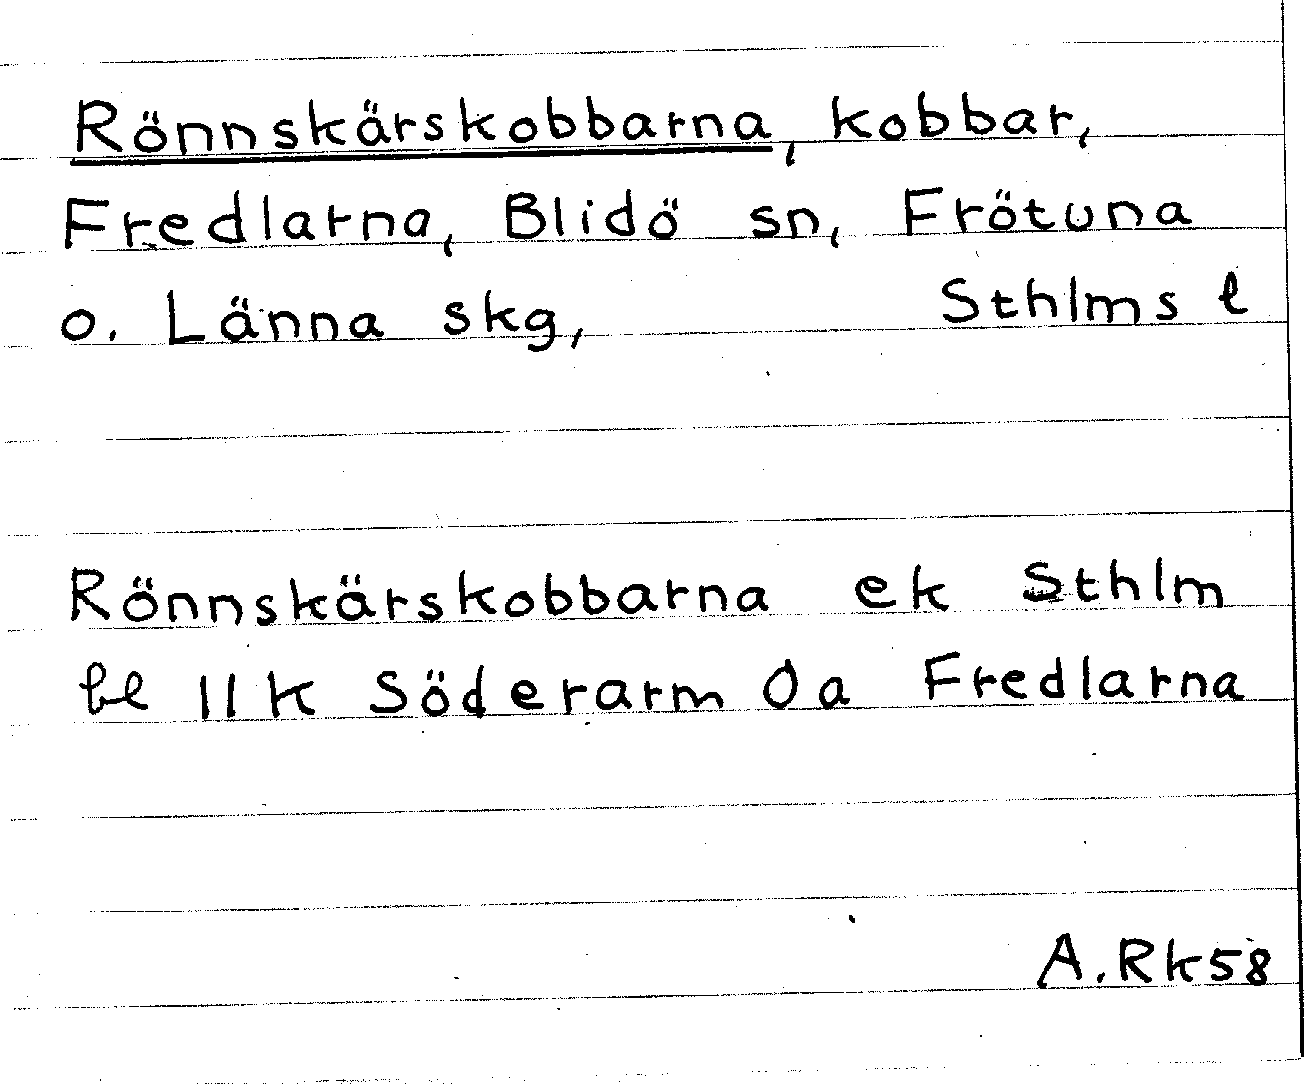 Rönnskärskobbarna, kobbar,
Fredlarna, Blidö sn, Frötuna
o. Länna skg, Sthlms l
Rönnskärskobbarna ek Sthlm
bl 11 k Söderarm Öa Fredlarna
A. Rk 58